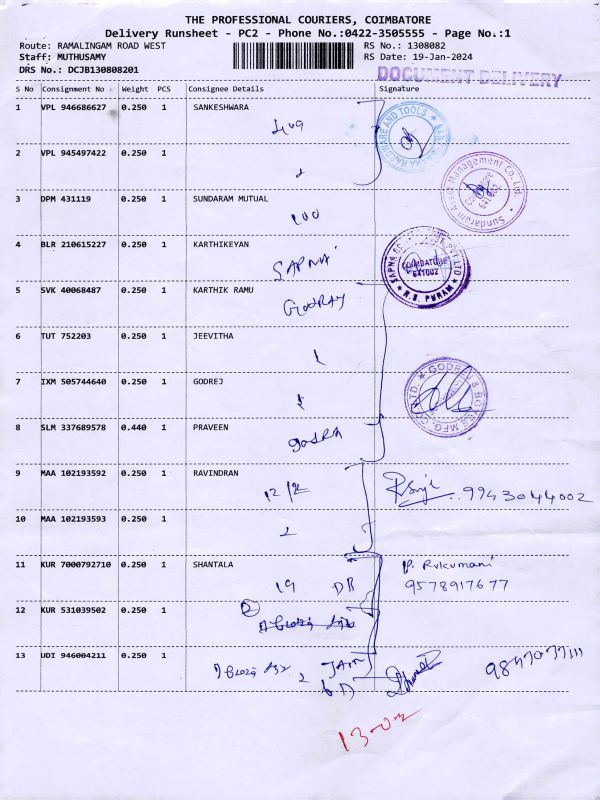 THE PROFESSIONAL COURIERS, COIMBATORE
Delivery Runsheet - PC2 - Phone No.:0422-3505555 - Page No.:1
Route: RAMALINGAM ROAD WEST RS No.: 1308082
Staff: MUTHUSAMY RS Date: 19-Jan-2024
DRS No.: DCJB130808201 DOCUMENT DELIVERY
S No Consignment No Weight PCS Consignee Details Signature
1 VPL 946686627 0.250 1 SANKESHWARA
HARDWARE AND TOOLS
2 VPL 945497422 0.250 1
Sundaram Asset Management Co. Ltd.
3 DPM 431119 0.250 1 SUNDARAM MUTUAL
100
4 BLR 210615227 0.250 1 KARTHIKEYAN
SAPNA
COIMBATORE
641002
R.S. PURAM
5 SVK 40068487 0.250 1 KARTHIK RAMU
6 TUT 752203 0.250 1 JEEVITHA
7 IXM 505744640 0.250 1 GODREJ
GODREJ & BOYCE MFG. CO. LTD.
8 SLM 337689578 0.440 1 PRAVEEN
9 MAA 102193592 0.250 1 RAVINDRAN
9943044002
10 MAA 102193593 0.250 1
2
11 KUR 7000792710 0.250 1 SHANTALA P. Rukumani
19 DB 9578917677
12 KUR 531039502 0.250 1
2
13 UDI 946004211 0.250 1
2 JAIN
13-02